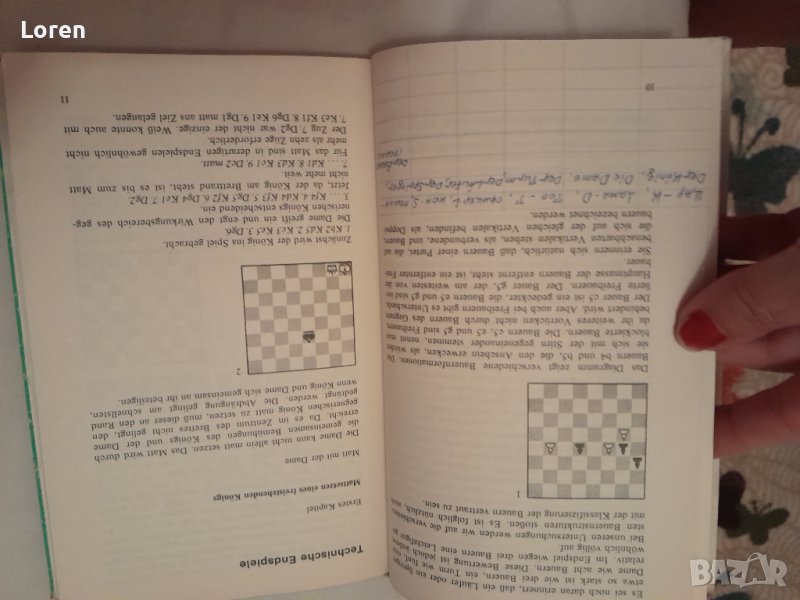 Loren
10
Es sei noch daran erinnert, daß ein Läufer oder ein Springer
etwa so stark ist wie drei Bauern, ein Turm wie fünf und
Dame wie acht Bauern. Diese Bewertung ist jedoch äußerst
relativ. Im Endspiel wiegen drei Bauern eine Leichtfigur ge
wöhnlich völlig auf.
Bei unseren Untersuchungen werden wir auf die verschieden
sten Bauernstrukturen stoßen. Es ist folglich nützlich, auch
mit der Klassifizierung der Bauern vertraut zu sein.
1
Das Diagramm zeigt verschiedene Bauernformationen. Die
Bauern b4 und b5, die den Anschein erwecken, als würden
sie sich mit der Stirn gegeneinander stemmen, nennt man
blockierte Bauern. Die Bauern c5, e5 und g5 sind Freibauern,
da ihr weiteres Vorrücken nicht durch Bauern des Gegners
behindert wird. Aber auch bei Freibauern gibt es Unterschiede.
Der Bauer c5 ist ein gedeckter, die Bauern e5 und g5 sind iso-
lierte Freibauern. Der Bauer g5, der am weitesten von der
Hauptmasse der Bauern entfernt steht, ist ein entfernter Frei-
bauer.
Sie erinnern sich natürlich, daß Bauern einer Partei, die auf
benachbarten Vertikalen stehen, als verbundene, und Bauern,
die sich auf der gleichen Vertikalen befinden, als Doppel-
bauern bezeichnet werden.
Der König. Die Dame. Der Turm, Der Läufer, Der Springer
11
Technische Endspiele
Erstes Kapitel
Mattsetzen eines freistehenden Königs
Matt mit der Dame
Die Dame kann nicht allein matt setzen. Das Matt wird durch
die gemeinsamen Bemühungen des Königs und der Dame
erreicht. Da es im Zentrum des Brettes nicht gelingt, den
gegnerischen König matt zu setzen, muß dieser an den Rand
gedrängt werden. Die Abdrängung gelingt am schnellsten,
wenn König und Dame sich gemeinsam an ihr beteiligen.
2
Zunächst wird der König ins Spiel gebracht.
1. Kb2 Kd5 2. Kc3 Ke5 3. Dg6
Die Dame greift ein und engt den Wirkungsbereich des geg-
nerischen Königs entscheidend ein.
3. ... Kf4 4. Kd4 Kf3 5. Dg5 Kf2 6. Dg4 Ke1 7. Dg2
Jetzt, da der König am Brettrand steht, ist es bis zum Matt
nicht mehr weit
7. ... Kd1 8. Kd3 Kc1 9. Dc2 matt.
Für das Matt sind in derartigen Endspielen gewöhnlich nicht
mehr als zehn Züge erforderlich.
Der Zug 7. Dg2 war nicht der einzige. Weiß konnte auch mit
7. Ke3 Kf1 8. Dg6 Ke1 9. Dg1 matt ans Ziel gelangen.
BAZAR